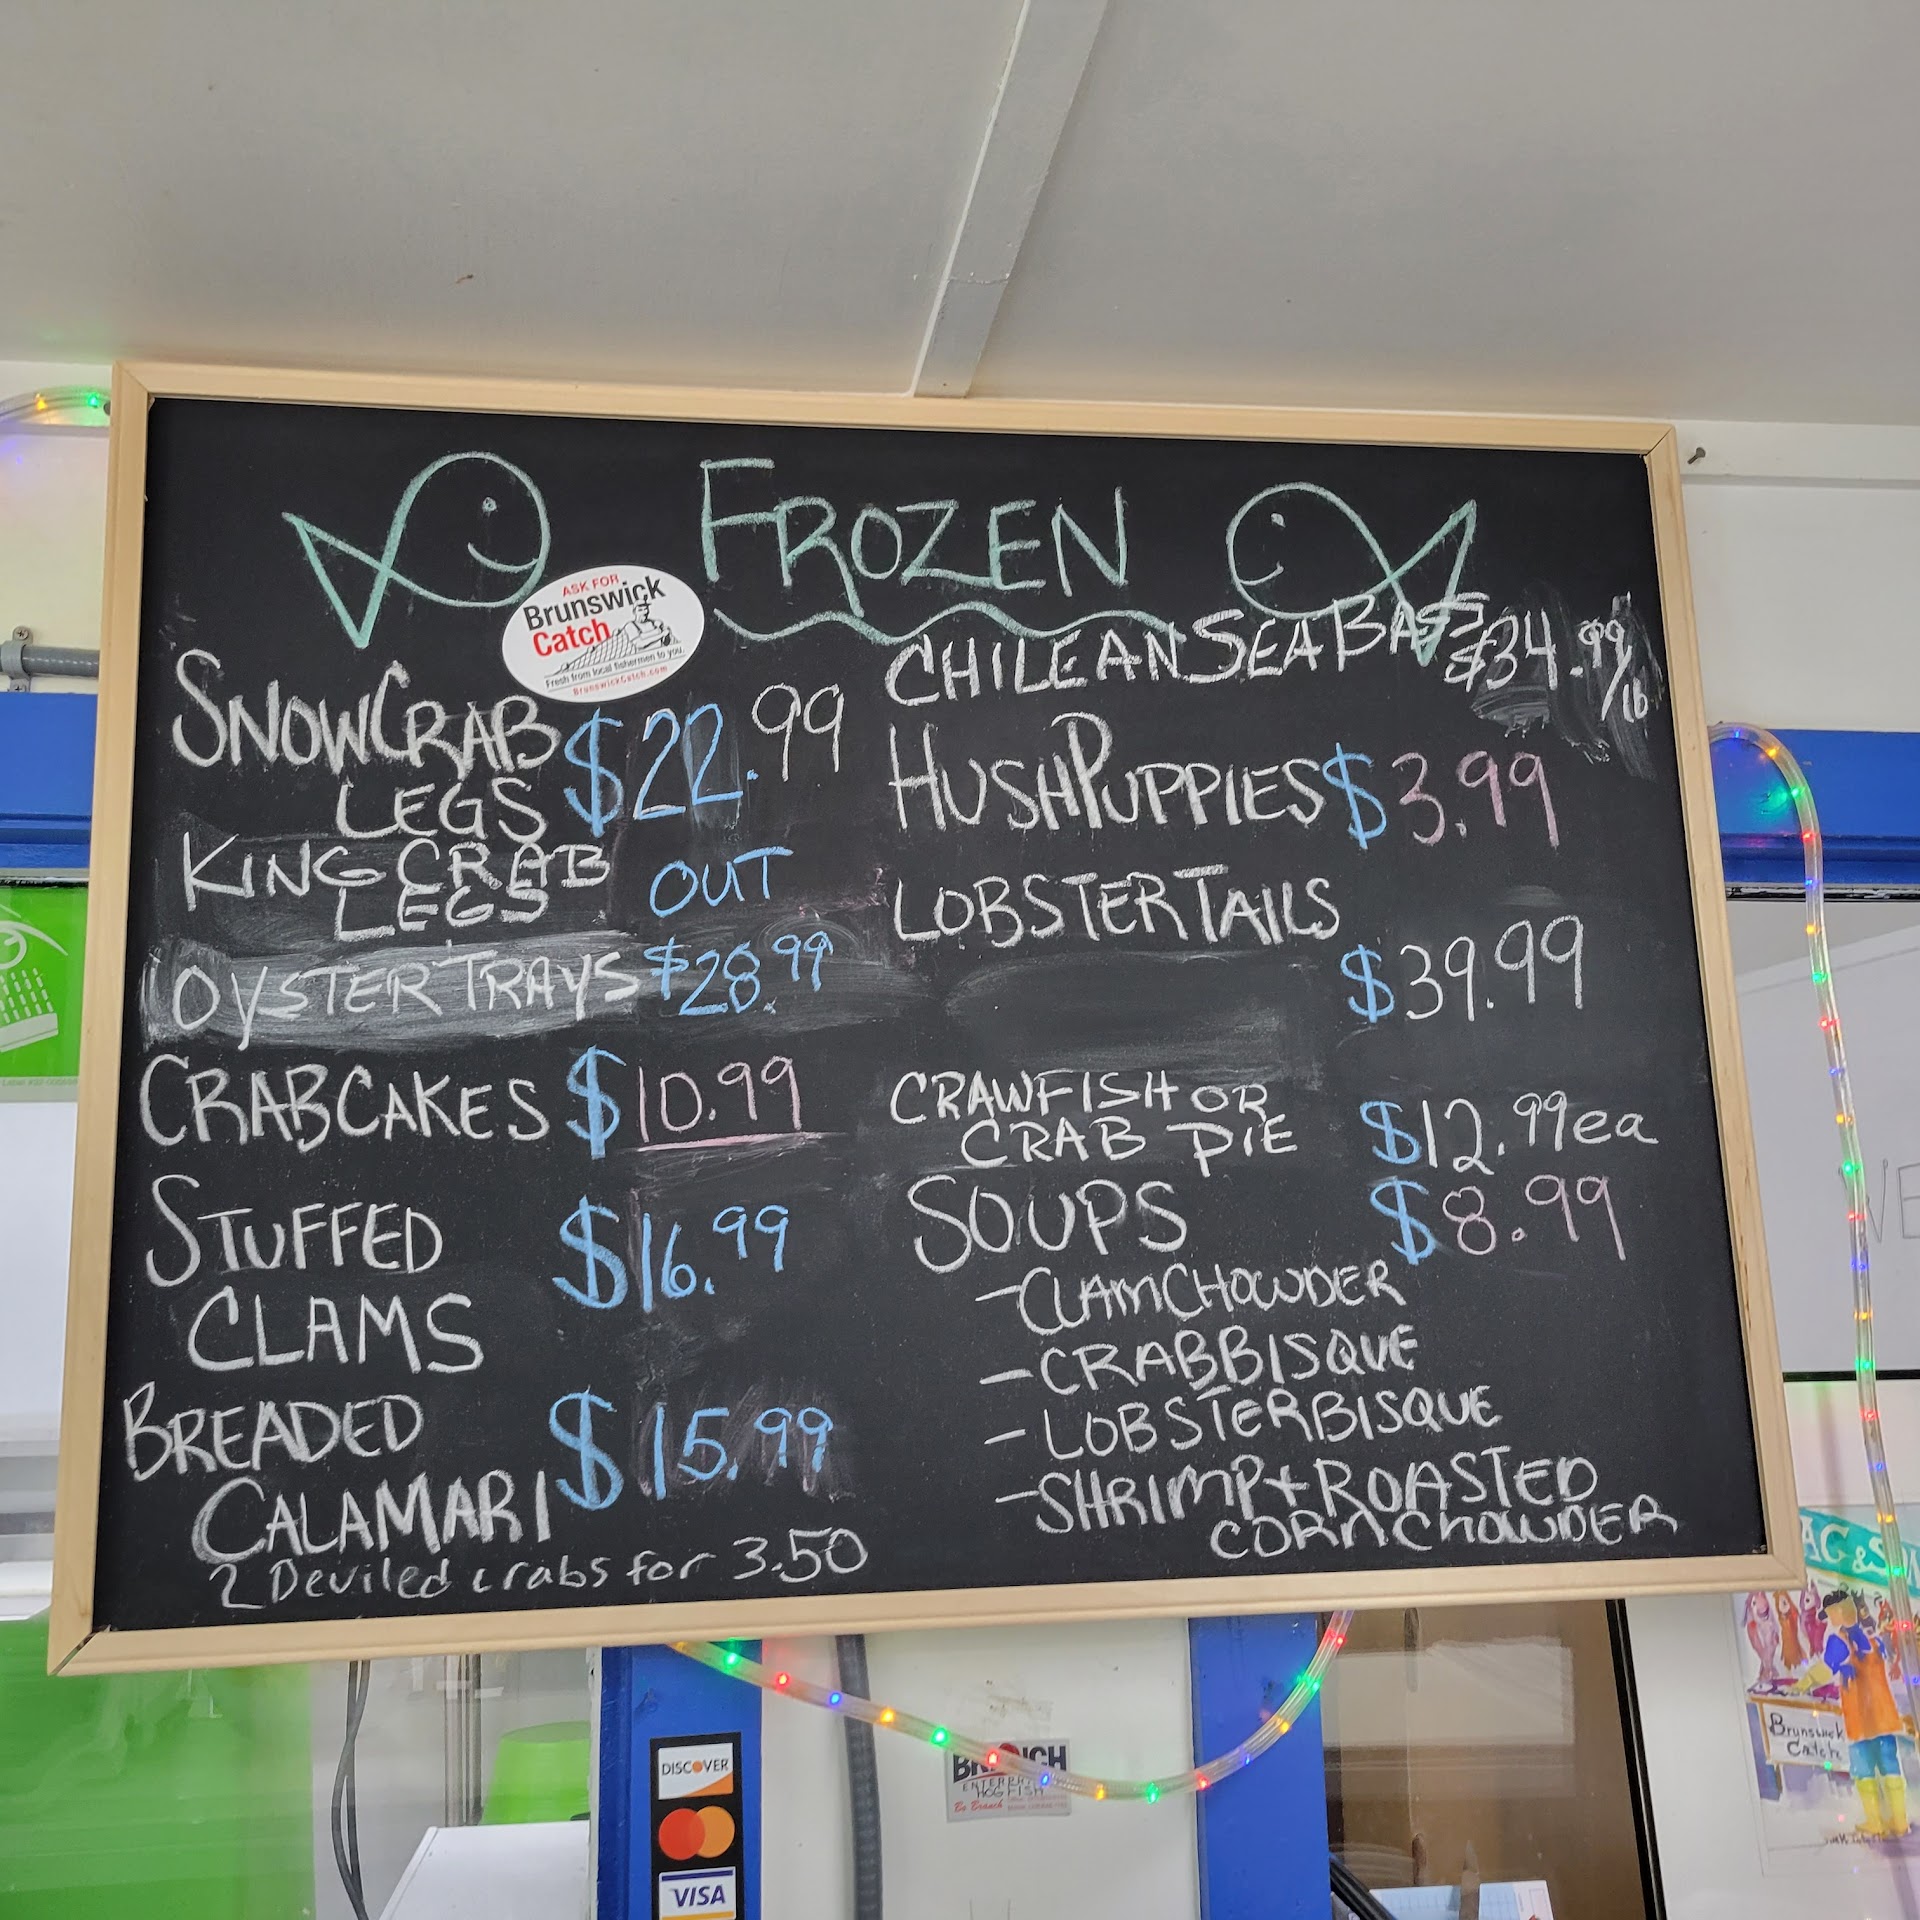 FROZEN
ASK FOR
Brunswick
Catch
Fresh from local fishermen to you.
BrunswickCatch.com
SNOWCRAB $22.99
LEGS
KING CRAB OUT
LEGS
OYSTER TRAYS $28.99
CRABCAKES $10.99
STUFFED $16.99
CLAMS
BREADED $15.99
CALAMARI
2 Deviled crabs for 3.50
CHILEAN SEA BASS $34.99/lb
HUSHPUPPIES $3.99
LOBSTER TAILS
$39.99
CRAWFISH OR
CRAB PIE $12.99ea
SOUPS $8.99
- CLAM CHOWDER
- CRAB BISQUE
- LOBSTER BISQUE
- SHRIMP + ROASTED
CORN CHOWDER
DISCOVER
VISA
HOGFISH
Brunswick
Catch